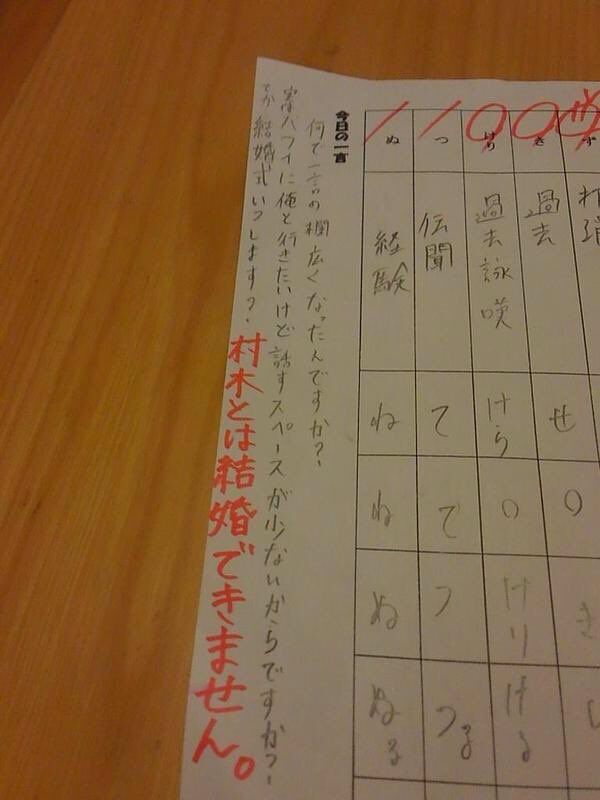 ず 打消
き 過去 せ ○ き し
けり 過去詠嘆 けら ○ けり ける
つ 伝聞 て て つ つる
ぬ 経験 ね ね ぬ ぬる
今日の一言
何で一言の欄広くなったんですか?
実はハワイに俺と行きたいけど話すスペースが少ないからですか?
てか結婚式いつします?
村木とは結婚できません。